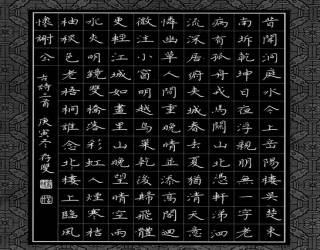 昔聞洞庭水今上岳陽樓吳楚東
南坼乾坤日夜浮親朋無一字老
病有孤舟戎馬關山北憑軒涕泗
流深居俯夾城春去夏猶清天意
憐幽草人間重晚晴並添高閣迥
微注小窗明越鳥巢乾後歸飛體
更輕江城如畫裏山晚望晴空兩
水夾明鏡雙橋落彩虹人煙寒橘
柚秋色老梧桐誰念北樓上臨風
懷謝公 古詩三首 庚寅冬